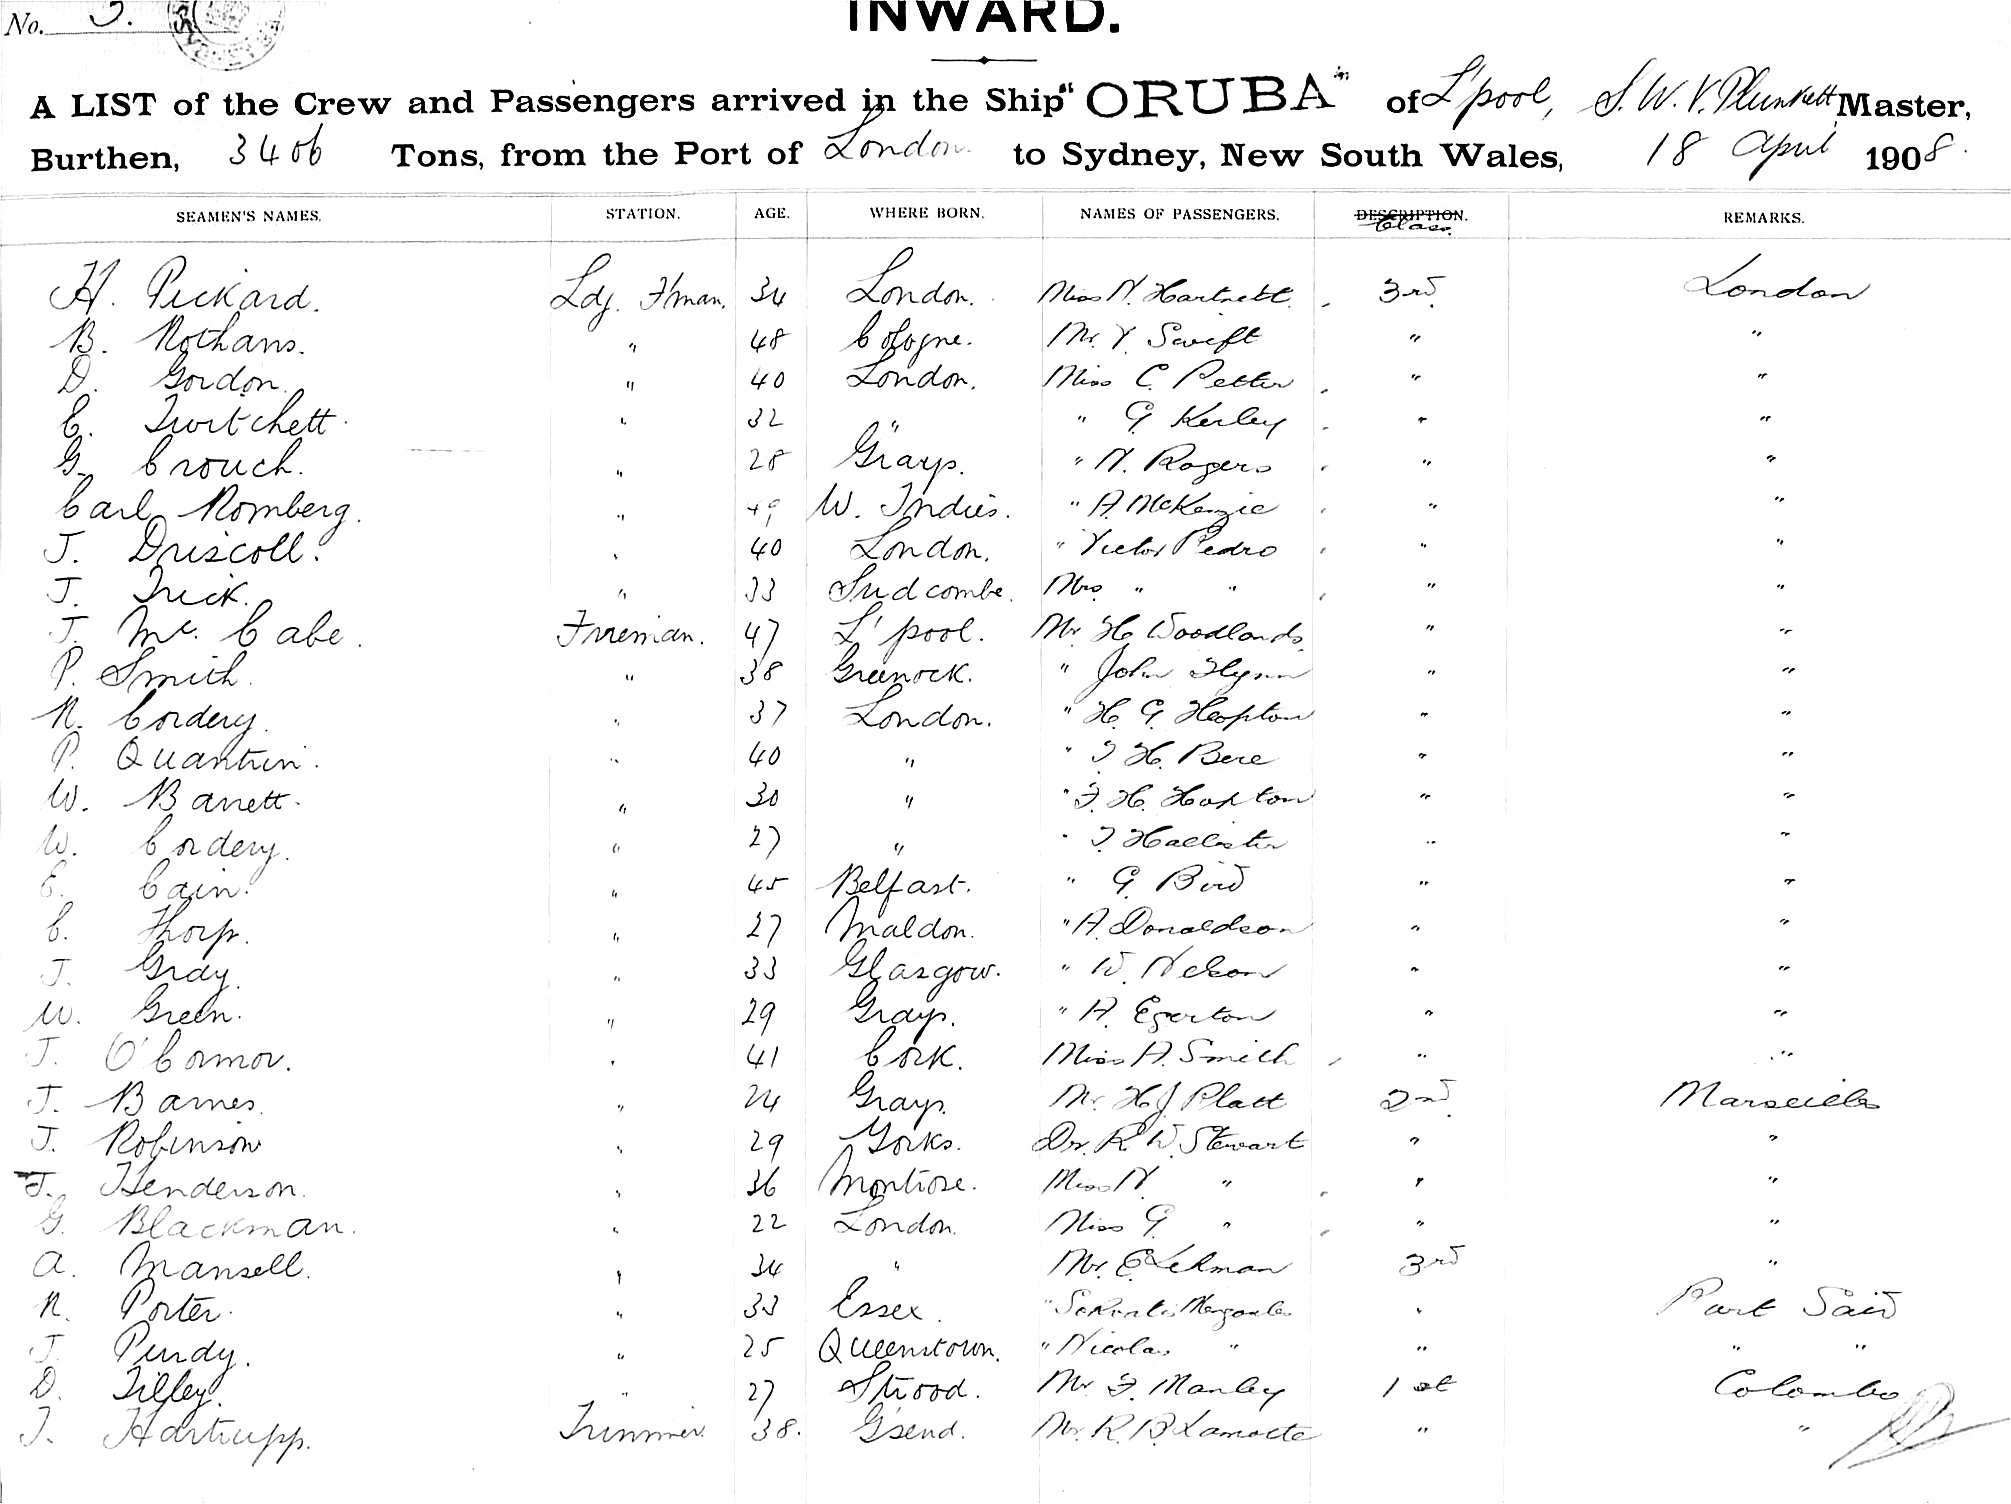 No. 5.
INWARD.
A LIST of the Crew and Passengers arrived in the Ship "ORUBA" of L'pool, S. W. V. Plunkett, Master,
Burthen, 3406 Tons, from the Port of London to Sydney, New South Wales, 18 April 1908.
SEAMEN'S NAMES. STATION. AGE. WHERE BORN. NAMES OF PASSENGERS. DESCRIPTION. Class. REMARKS.
H. Pickard. Ldg. F'man. 34 London. Miss N. Hartnett. 3rd. London
B. Rothans. " 48 Cologne. Mr. V. Swift " "
D. Gordon. " 40 London. Miss C. Petter " "
E. Twitchett " 32 " " G. Kerley " "
G. Crouch. " 28 Grays. " N. Rogers " "
Carl Romberg. " 49 W. Indies. " A. McKenzie " "
J. Driscoll. " 40 London. " Victor Pedro " "
J. Trick. " 33 Sudcombe. Mrs. " " " "
J. Mc. Cabe. Fireman. 47 L'pool. Mr H. Woodlands. " "
P. Smith. " 38 Greenock. " John Flynn " "
R. Cordery. " 37 London. " H. G. Hopton " "
P. Quantrin. " 40 " " T. H. Bere " "
W. Barrett. " 30 " " F. H. Hopton " "
W. Cordery. " 27 " " T. Hallister " "
E. Cain. " 45 Belfast. " G. Bird " "
C. Thorp. " 27 Maldon. " A. Donaldson " "
J. Gray. " 33 Glasgow. " W. Nelson " "
W. Green. " 29 Grays. " A. Egerton " "
J. O'Connor. " 41 Cork. Miss A. Smith " "
J. Barnes. " 24 Grays. Mr. H J Platt 2nd. Marseilles
J. Robinson " 29 Yorks. Dr. R W. Stewart " "
J. Henderson. " 36 Montrose. Miss N. " " "
G. Blackman. " 22 London. Miss G. " " "
A. Mansell. " 34 " Mr. E Lehman 3rd "
R. Porter. " 33 Essex. " " Port Said
J. Purdy. " 25 Queenstown. " Nicolas " " " "
D. Tilley. " 27 Strood. Mr F. Manley 1st Colombo
J. Hartrupp. Trimmer. 38. G'send. Mr. R. B. Lamotte " "